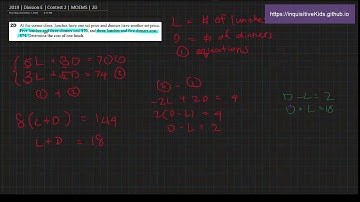 2019 | Division E | Contest 2 | MOEMS | 2D
https://inquisitivekids.github.io
2D At the senior diner, lunches have one set price and dinners have another set price.
Five lunches and three dinners cost $70, and three lunches and five dinners cost
$74. Determine the cost of one lunch.
L = # of lunches
D = # of dinners
2 equations
5L + 3D = 70 ①
3L + 5D = 74 ②
① + ②
8(L+D) = 144
L+D = 18
② - ①
-2L + 2D = 4
2(D-L) = 4
D-L = 2
D - L = 2
D + L = 18